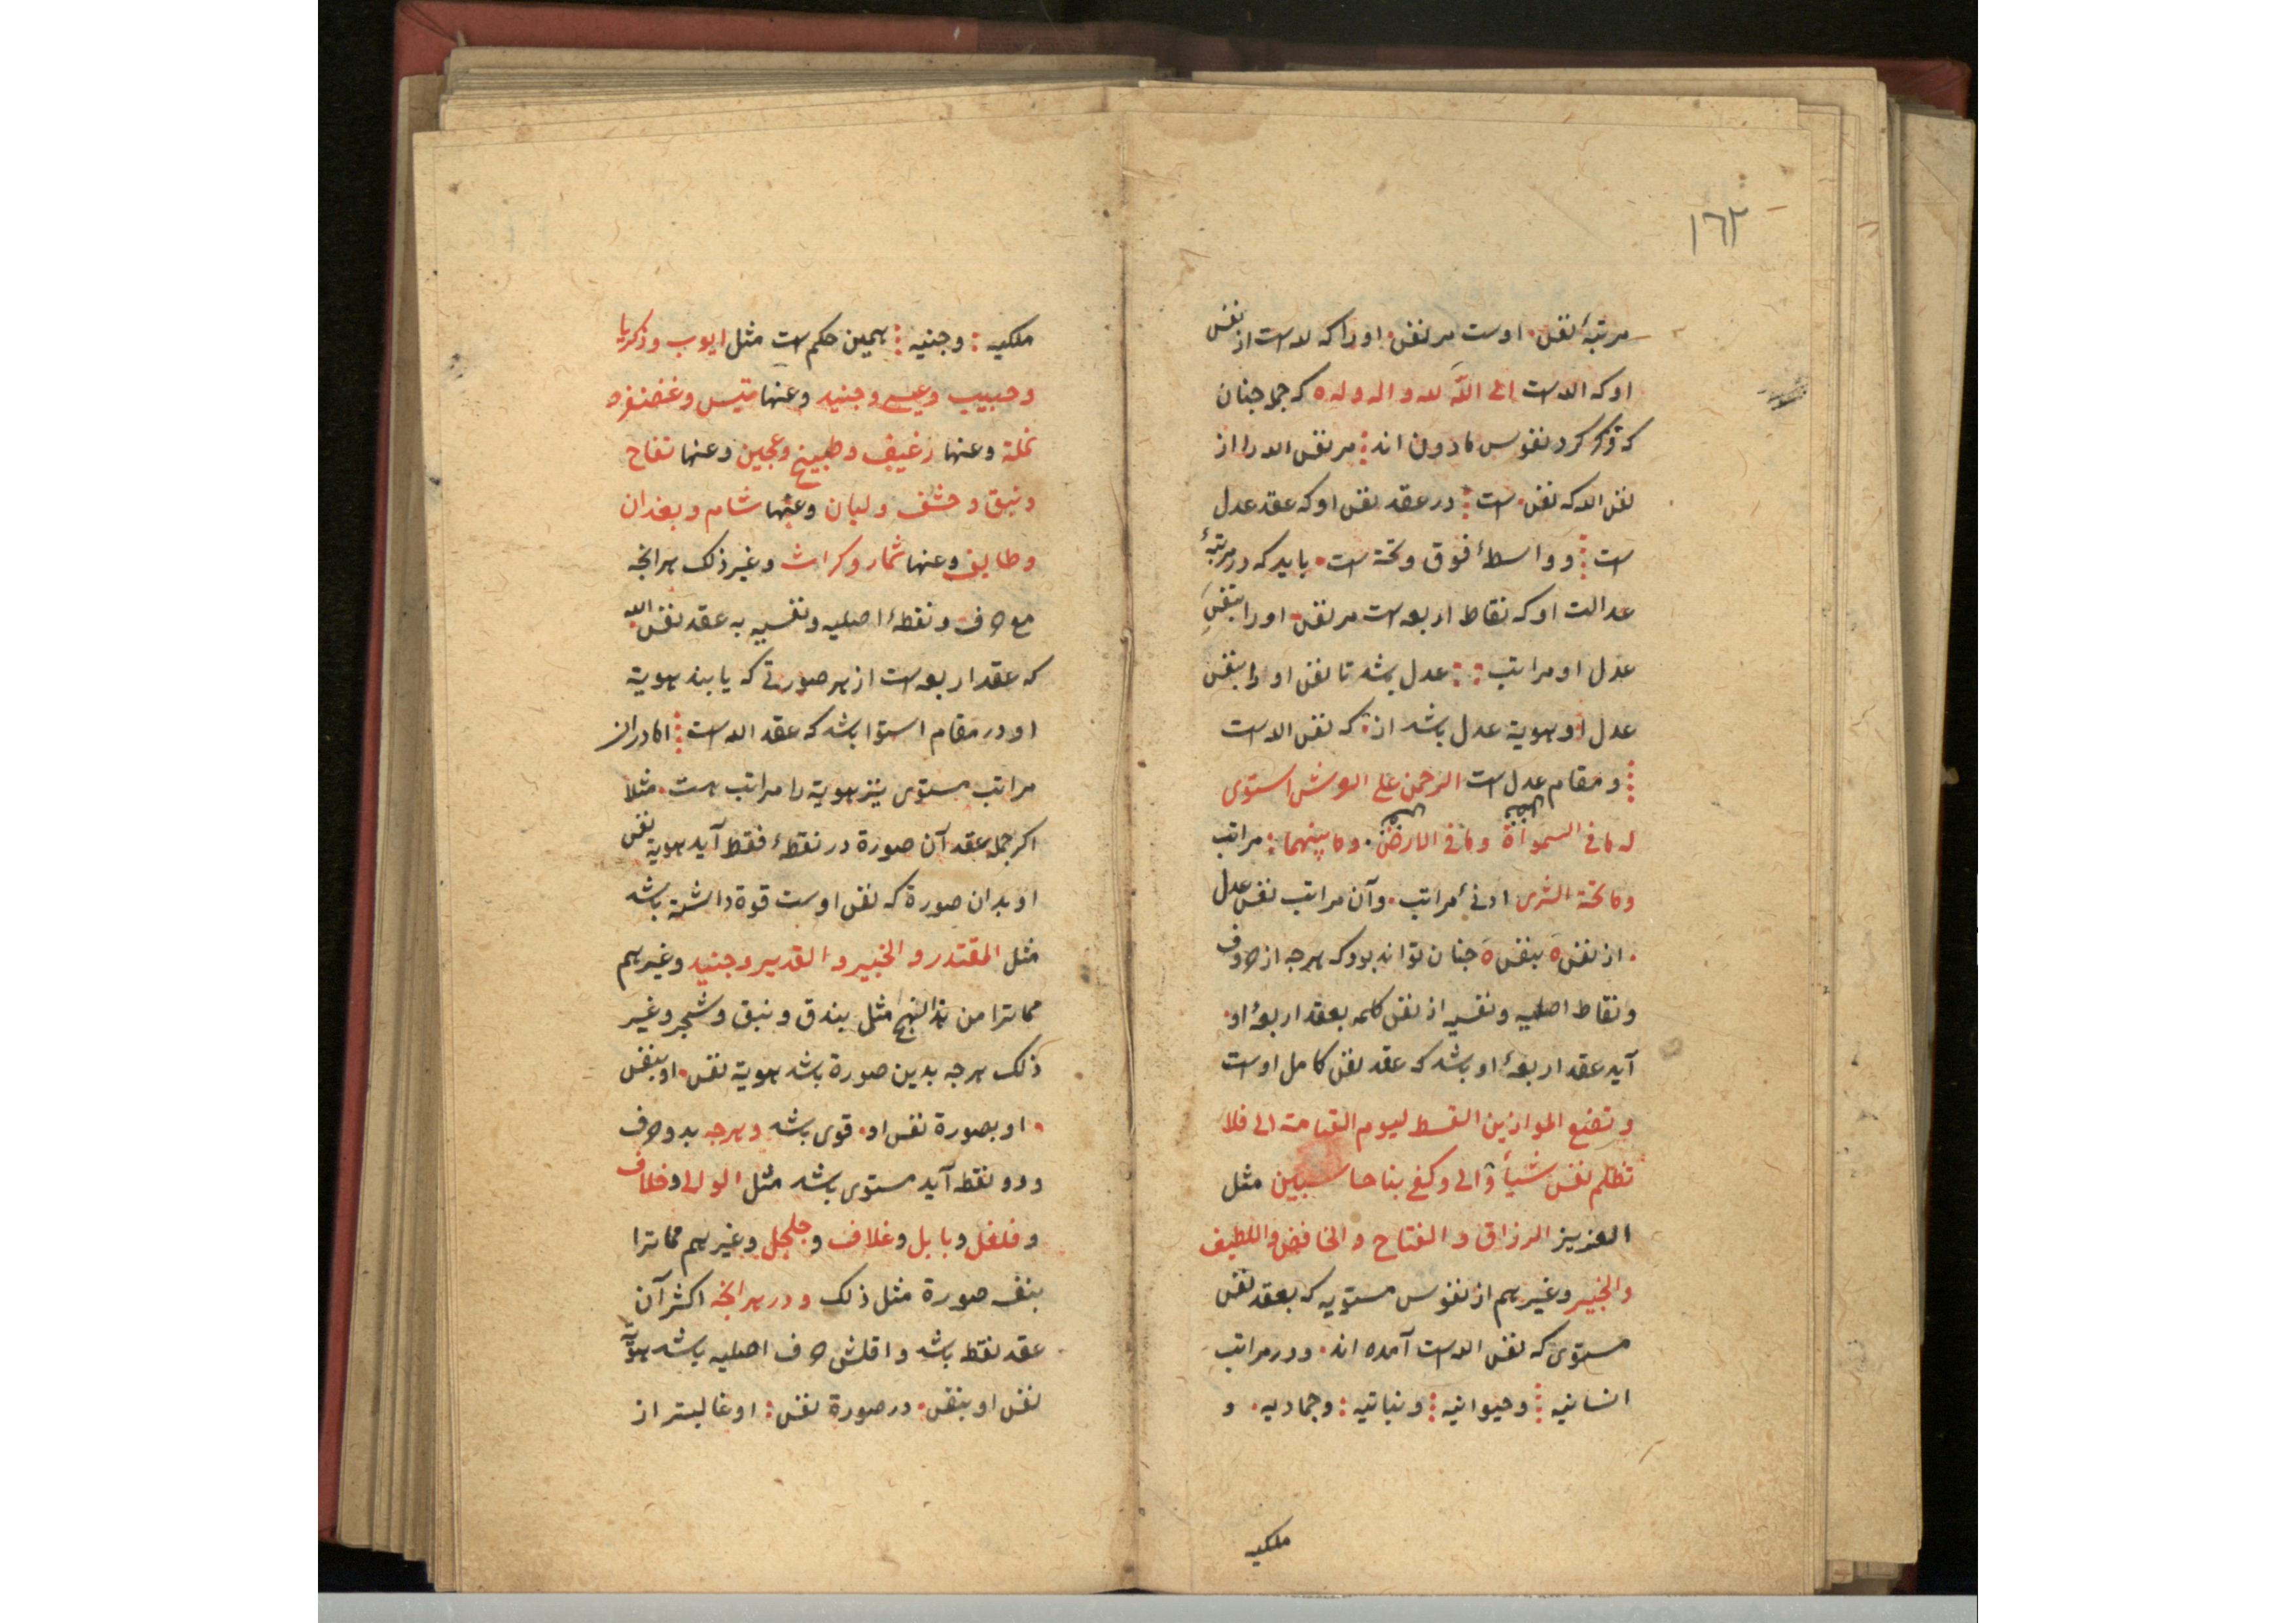 ١٦٢
مرتبهٔ نفس • اوست مر نفس • اورا که لله است از نفس
او که الله است الی الله لله و اله و له ه که جمله جنان
که ذکر کرد نفوس مادون اند ⁝ مر نفس الله را از
نفس الله که نفس • است ⁝ در عقد نفس او که عقد عدل
است ⁝ و واسطهٔ فوق و تحته است • باید که در مرتبهٔ
عدالت او که نقاط اربعه است مر نفس • اورا بنفس
عدل او مراتب : : عدل باشد تا نفس او را بنفس
عدل او هویة عدل باشد از • که نفس الله است
⁝ و مقام عدل است الرحمن علی العرش استوی
له ما فی السمواة وما فی الارض • وما بینهما : مراتب
وما تحته الثری ادنی مراتب • وآن مراتب نفس عدل
• از نفس ه بنفس ه جنان تواند بود که هرجه از حروف
ونقاط اصلیه ونفسیه از نفس کلمه بعقد اربعهٔ او •
آید عقد اربعهٔ او باشد که عقد نفس کامل اوست
ونضع الموازین القسط لیوم القیامة الی فلا
تظلم نفس شیأ والی وکفی بنا حاسبین مثل
العزیز الرزاق و الفتاح و الخافض واللطیف
والخبیر وغیرهم از نفوس مستویه که بعقد نفس
مستوی که نفس الله است آمده اند • ودر مراتب
انسانیه ⁝ وحیوانیه ⁝ ونباتیه : وجمادیه • و
ملکیه
ملکیه : وجنیه ⁝ همین حکم است مثل ایوب وزکریا
وحبیب وعیسی وجنید وعنها قیس وغضنفر و
نملة وعنها رغیف وطبیخ وعجین وعنها تفاح
ونبق و خشف ولبان وعنها شام وبغدان
وطایف وعنها شمار وکراث وغیر ذلک هرانجه
مع حرف ونقطهٔ اصلیه ونفسیه به عقد نفس الله
که عقد اربعه است از هر صورتی که یابند هویة
او در مقام استوا باشد که عقد الله است ⁝ امادران
مراتب مستوی نیز هویة را مراتب هست • مثلا
اکر جمله عقد آن صورة در نقطهٔ فقط آید هویة نفس
او بدان صورة که نفس اوست قوة داشته باشد
مثل المقتدر و الخبیر و القدیر وجنید وغیرهم
مما ترا من هذا النهج مثل بندق ونبق وشجر وغیر
ذلک هرجه بدین صورة باشد هویة نفس • او بنفس
• او بصورة نفس او • قوی باشد وهرجه بدو حرف
ودو نقطه آید مستوی باشد مثل الوالی وفلاف
وفلفل وبابل وغلاف وجلجل وغیرهم مما ترا
بنفس صورة مثل ذلک ودر هرانجه اکثر آن
عقد نقطه باشد واقلش حرف اصلیه باشد هویة
نفس او بنفس • در صورة نفس : او غالبتر از